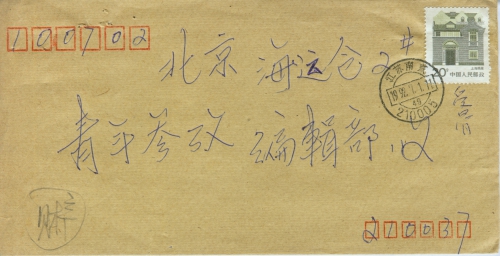 100702
北京 海运仓 2#
青年参政 编辑部 收
20
中国人民邮政
江苏南京
210005
210037